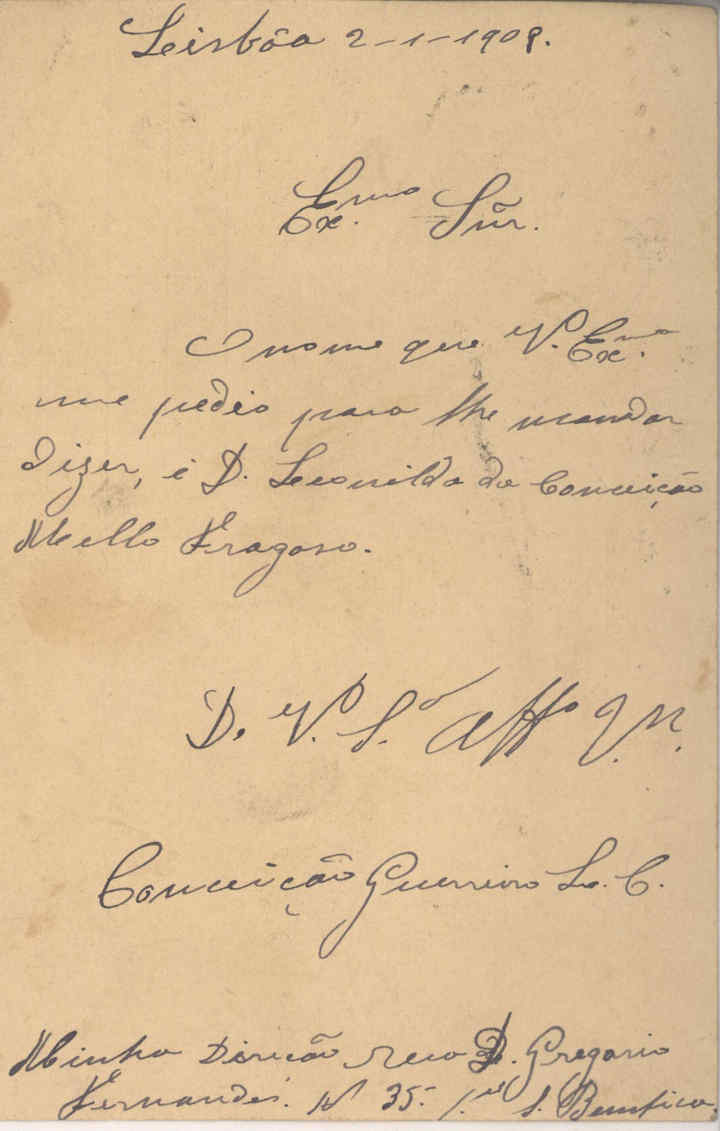 Lisbôa 2-1-1908.
Ex.mo Sñr.
O nome que V. Ex.ma
me pedio para lhe mandar
dizer, é D. Leonilda da Conceição
Mello Fragoso.
De V. S.a Aff.o
Conceição Guerreiro L. C.
Minha Direcão Rua D. Gregorio
Fernandes. Nº 35. 1.º S. Bemfica.